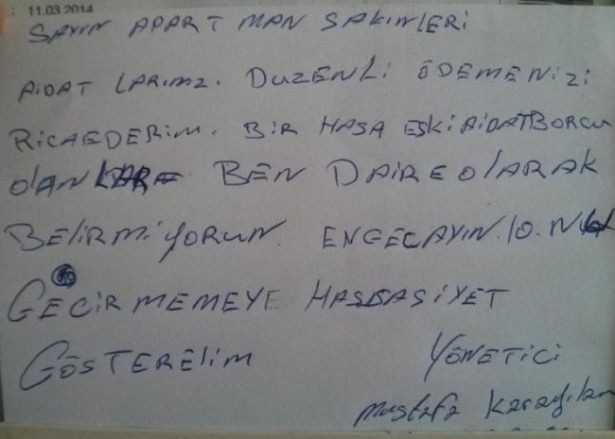 11.03.2014
SAYIN APARTMAN SAKINLERi
AiDAT LARIMZ. DUZENLi ÖDEMENiZi
RiCAEDERiM. BiR HASA ESKi AiDATBORCU
OlANLAR BEN DAiREOlARAK
BELiRMiYORUN. ENGECAYIN.10.N
GECiRMEMEYE HASSASiYET
GÖSTERELiM YÖNETiCi
Mustafa Karayılan